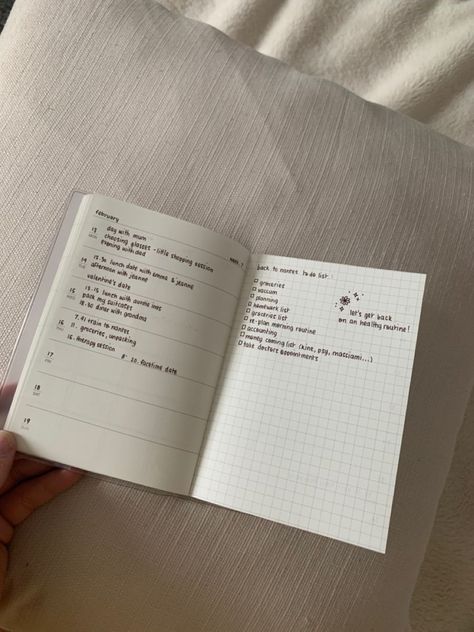 february
WEEK 7
13 day with mum
MON choosing glasses - little shopping session
evening with dad
14 12.30 lunch date with emma & jeanne
TUE afternoon with jeanne
valentine's date
15 13.15 lunch with auntie ines
WED pack my suitcases
18.30 diner with grandma
16 7.41 train to nantes
THU 11. groceries, unpacking
16. therapy session
17 8.20. facetime date
FRI
18
SAT
19
SUN
back to nantes to do list :
groceries
vacuum
planning
homework list
groceries list
re-plan morning routine
accounting
money coming list (kine, psy, massiami...)
take doctors appointments
let's get back
on an healthy routine!